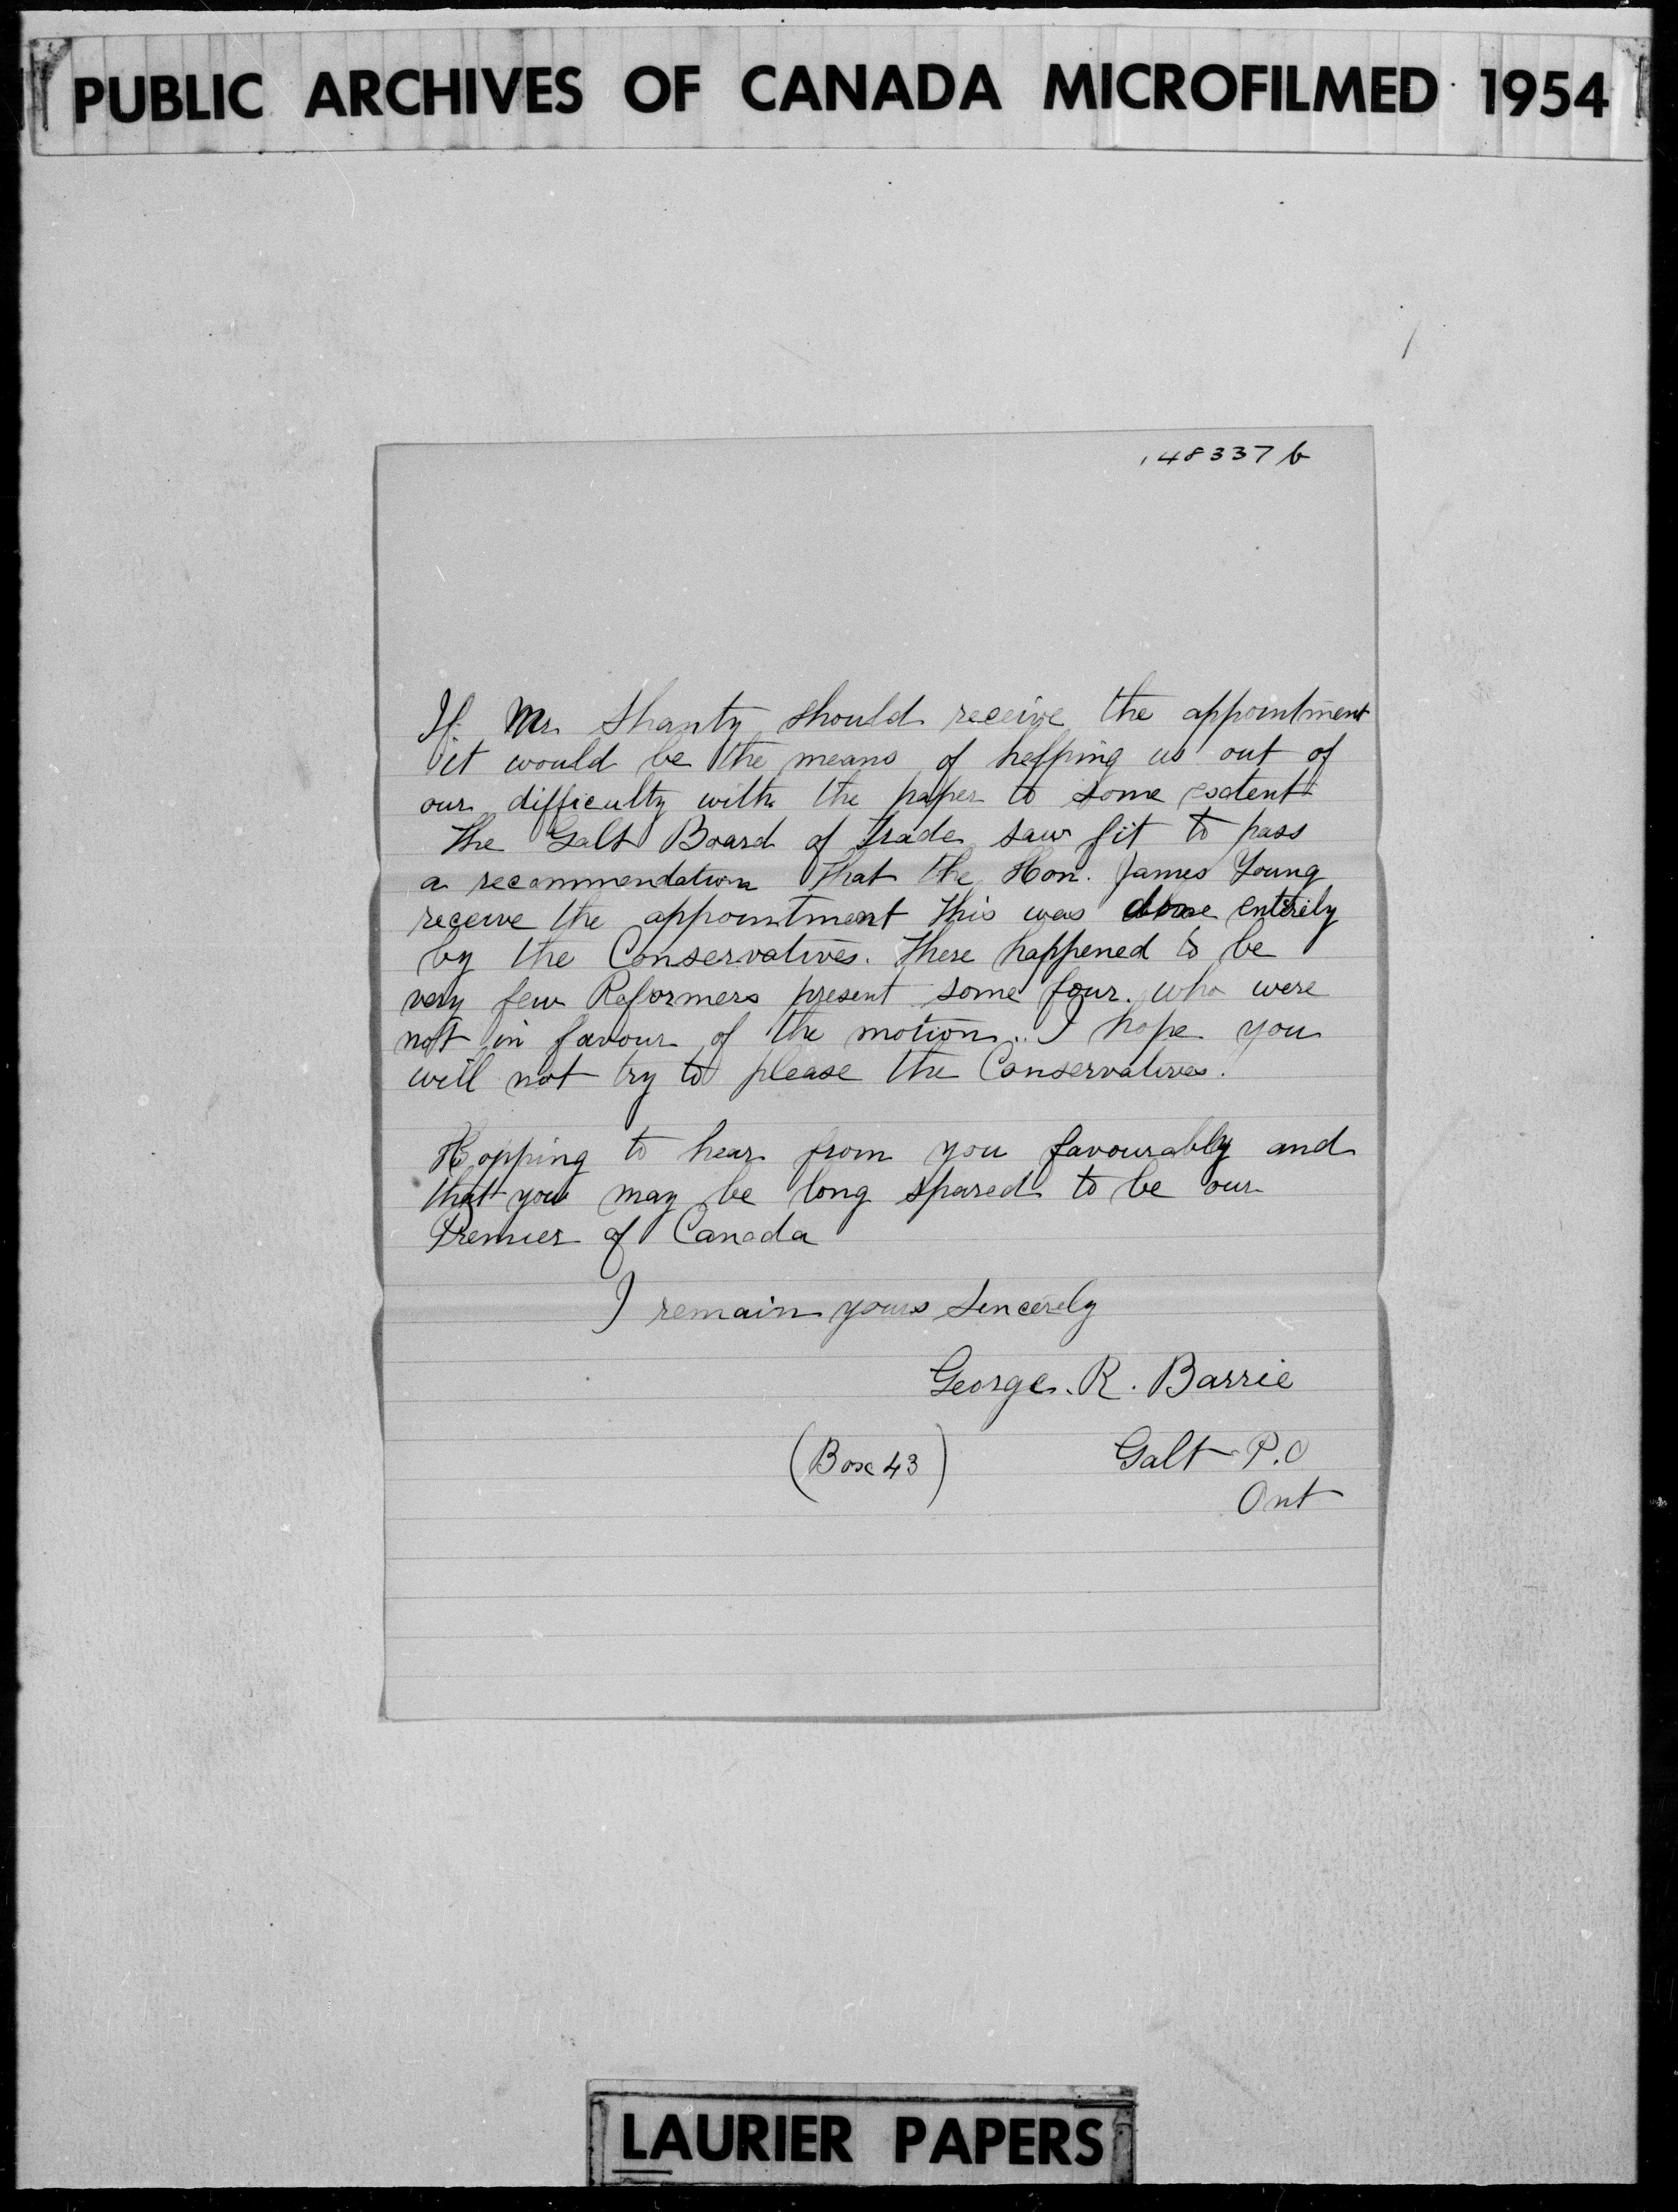 PUBLIC ARCHIVES OF CANADA MICROFILMED 1954
148337 b
If Mr. Shanty should receive the appointment
it would be the means of helping us out of
our difficulty with the paper to some extent
The Galt Board of trade saw fit to pass
a recommendation that the Hon. James Young
receive the appointment this was done entirely
by the Conservatives. There happened to be
very few Reformers present some four. who were
not in favour of the motion.. I hope you
will not try to please the Conservatives.
Hopping to hear from you favourably and
that you may be long spared to be our
Premier of Canada
I remain yours Sincerely
George. R. Barrie
(Box 43) Galt P.O
Ont
LAURIER PAPERS